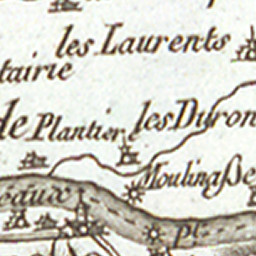 les Laurents
tairie
de Plantier les Duron
Moulin aße
éaux
Pl.